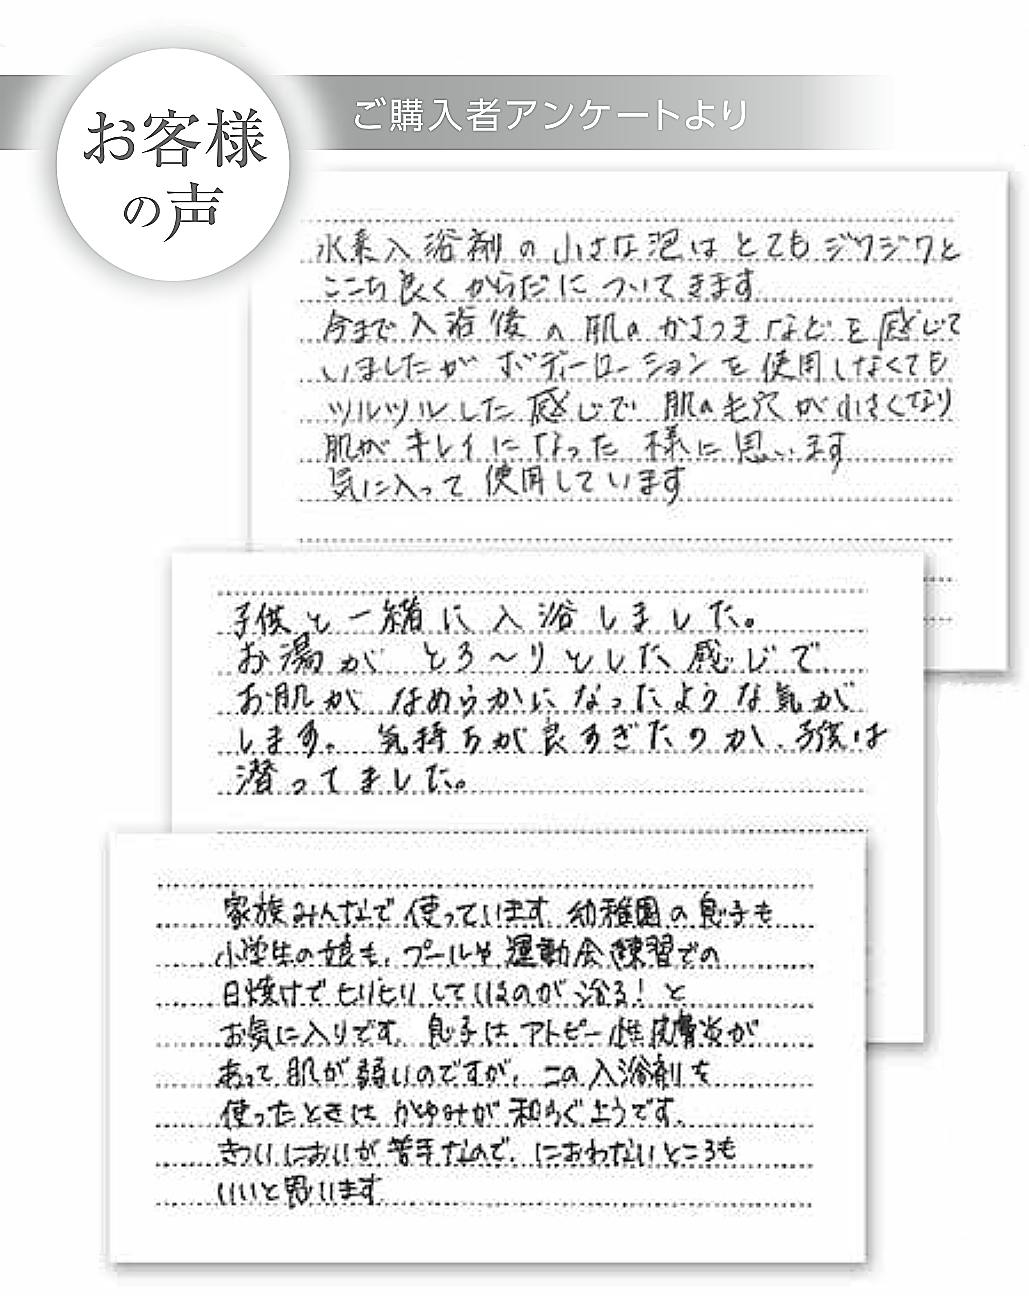 お客様
の声
ご購入者アンケートより
水素入浴剤の小さな泡はとてもジワジワと
ここち良くからだについてきます
今まで入浴後の肌のかさつきなどを感じて
いましたがボディーローションを使用しなくても
ツルツルした感じで肌の毛穴が小さくなり
肌がキレイになった様に思います
気に入って使用しています
子供と一緒に入浴しました。
お湯がとろ〜りとした感じで
お肌がなめらかになったような気が
します。気持ちが良すぎたのか、子供は
潜ってました。
家族みんなで使っています。幼稚園の息子も
小学生の娘も、プールや運動会練習での
日焼けでヒリヒリしているのが治る！と
お気に入りです。息子はアトピー性皮膚炎が
あって肌が弱いのですが、この入浴剤を
使ったときはかゆみが和らぐようです。
きついにおいが苦手なので、におわないところも
いいと思います